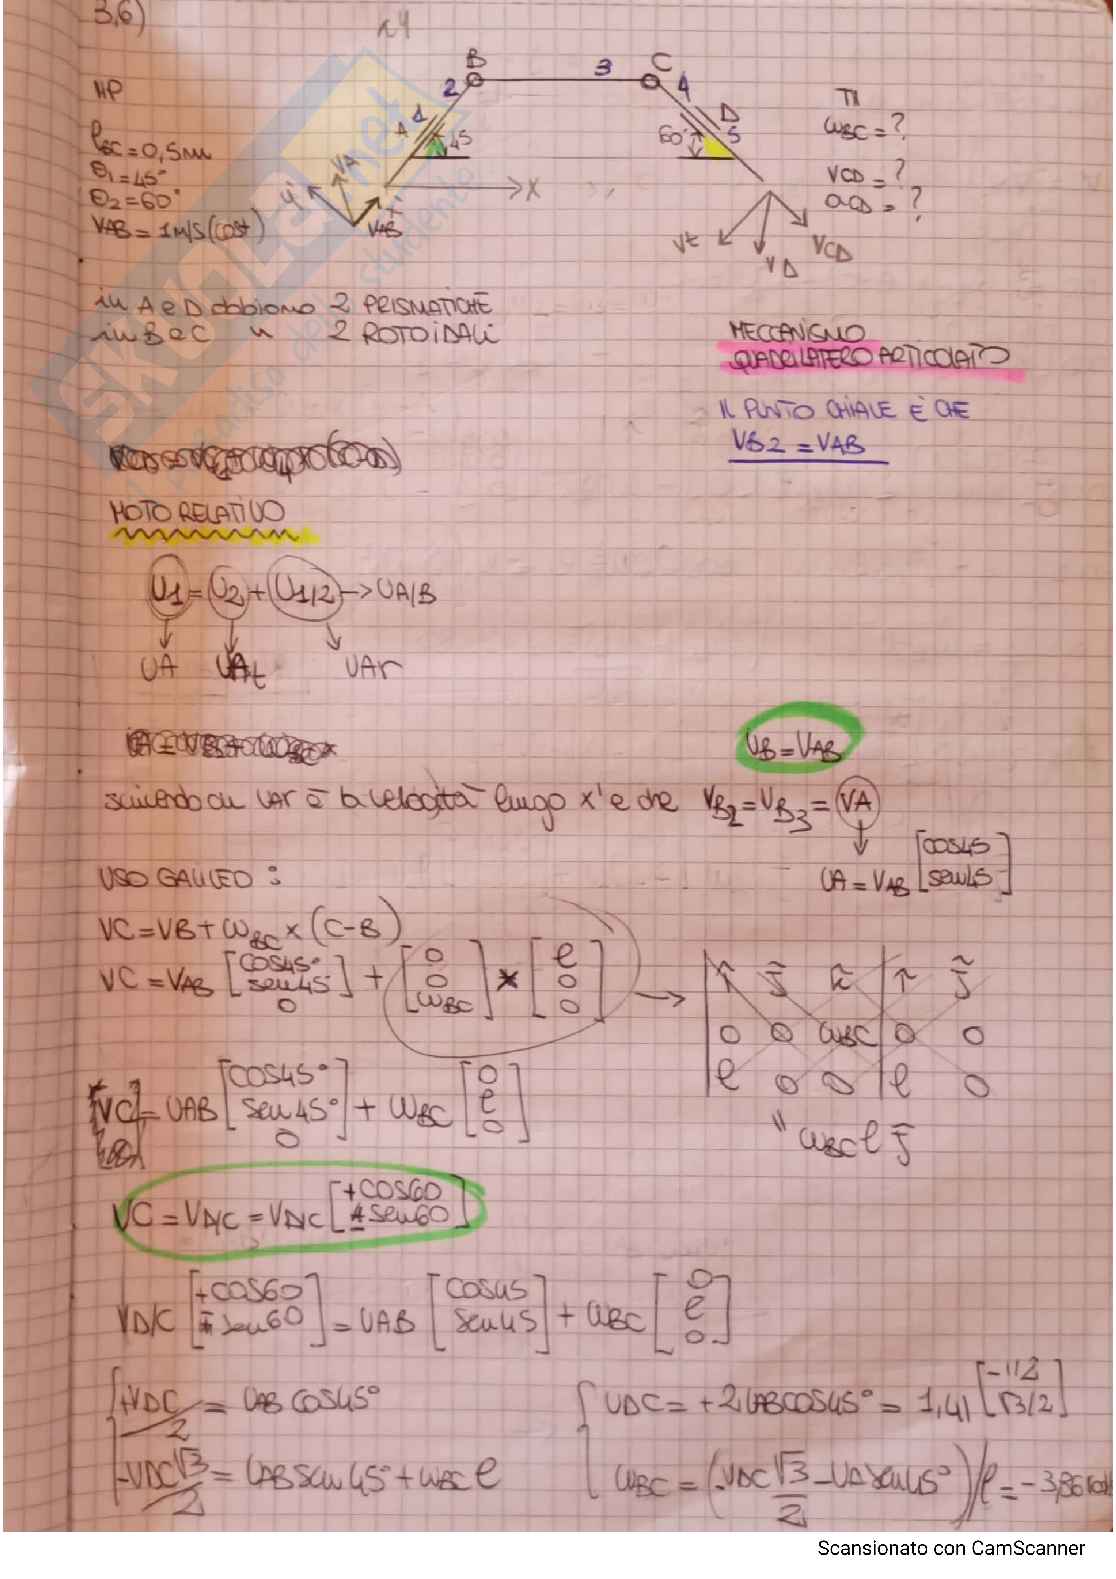 3,6)
HP
lBC = 0,5m
θ1 = 45°
θ2 = 60°
VAB = 1 m/s (cost)
B
2
1
A
45
3
C
4
D
5
60°
y'
VA
x'
VAB
x
Vt
VD
VCD
TH
ωBC = ?
VCD = ?
aCD = ?
in A e D abbiamo 2 PRISMATICHE
in B e C " 2 ROTOIDALI
MECCANISMO
QUADRILATERO ARTICOLATO
IL PUNTO CHIAVE È CHE
VB2 = VAB
MOTO RELATIVO
U1 = U2 + U1/2 → UA/B
UA UAt UAr
VB = VAB
scrivendo che VAr è la velocità lungo x' e che VB2 = VB3 = VA
VA = VAB [cos45 sen45]
USO GALILEO:
VC = VB + ωBC × (C-B)
VC = VAB [cos45° sen45° 0] + [0 0 ωBC] × [l 0 0] →
i j k i j
0 0 ωBC 0 0
l 0 0 l 0
" ωBC l j
VC = VAB [cos45° sen45° 0] + ωBC [0 l 0]
VC = VD/C = VD/C [+cos60 ± sen60]
VD/C [+cos60 - sen60] = VAB [cos45 sen45] + ωBC [0 l 0]
+VDC/2 = VAB cos45°
-VDC √3/2 = VAB sen45° + ωBC l
VDC = +2VAB cos45° = 1,41 [-1/2 √3/2]
ωBC = (-VDC √3/2 - VA sen45°)/l = -3,86 rad
Scansionato con CamScanner